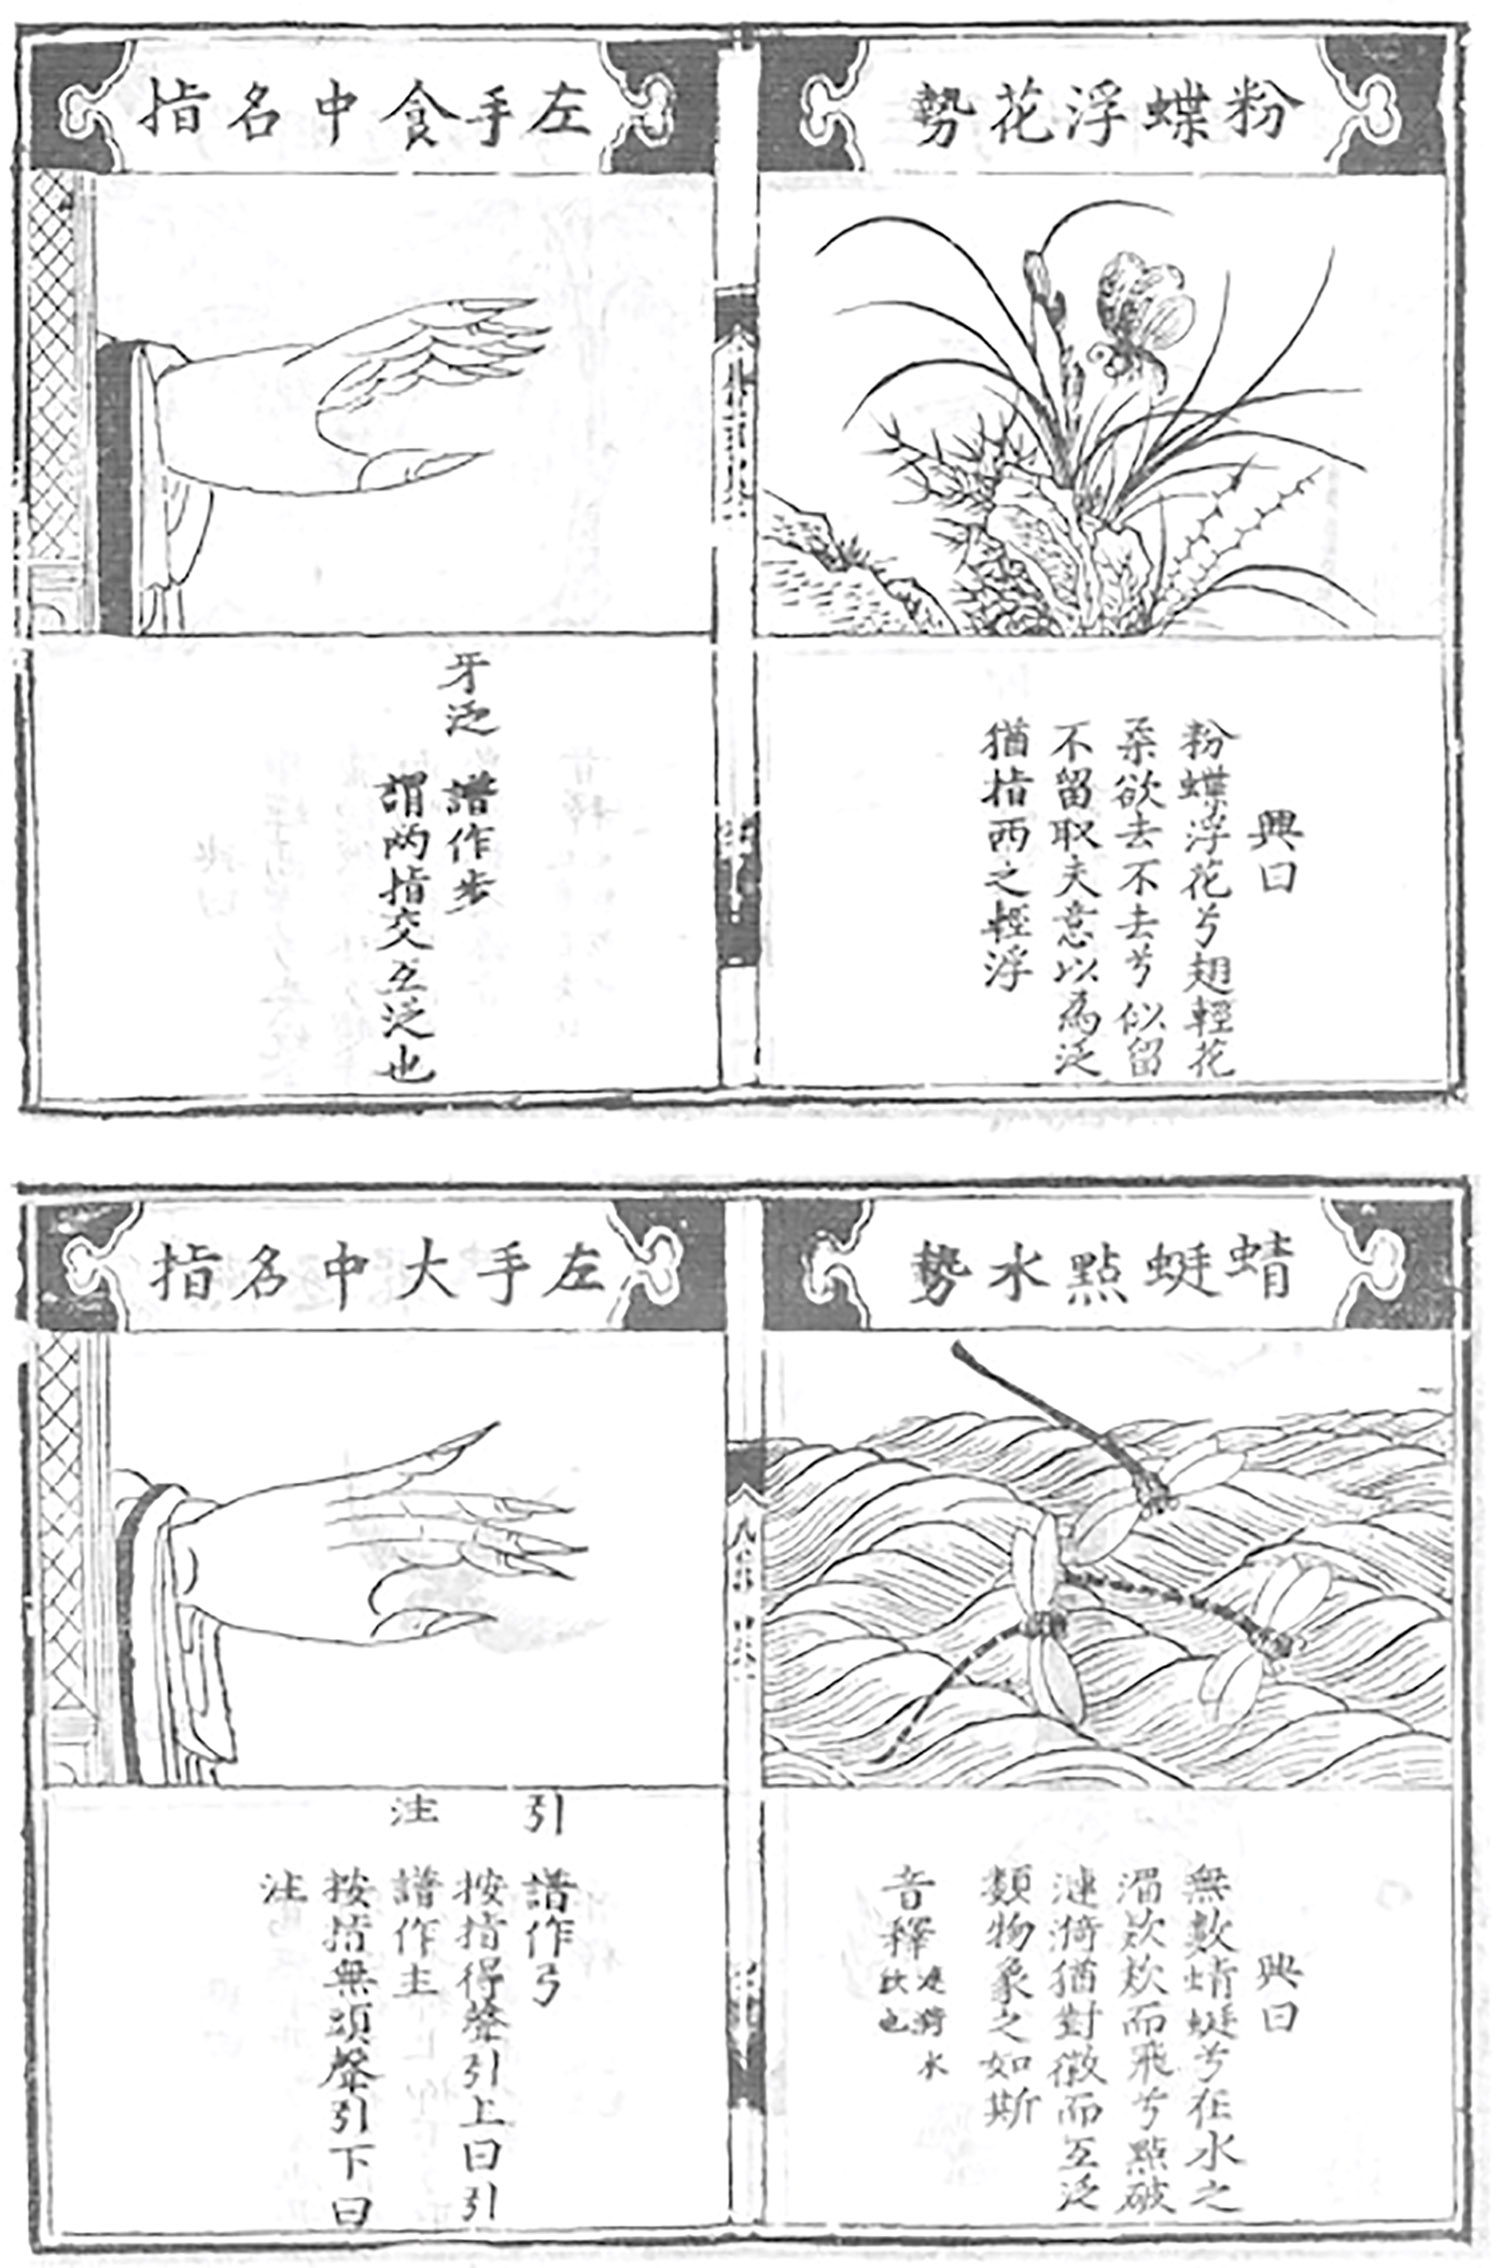 粉蝶浮花勢
興曰
粉蝶浮花兮翅輕花
柔欲去不去兮似留
不留取夫意以為泛
猶指面之輕浮
左手食中名指
牙泛
譜作步
謂兩指交互泛也
蜻蜓點水勢
興曰
無數蜻蜓兮在水之
湄款款而飛兮點破
漣漪猶對徽而互泛
類物象之如斯
音釋
漣漪水
紋也
左手大中名指
引 譜作弓
按指得聲引上曰引
注 譜作主
按指無頭聲引下曰
注